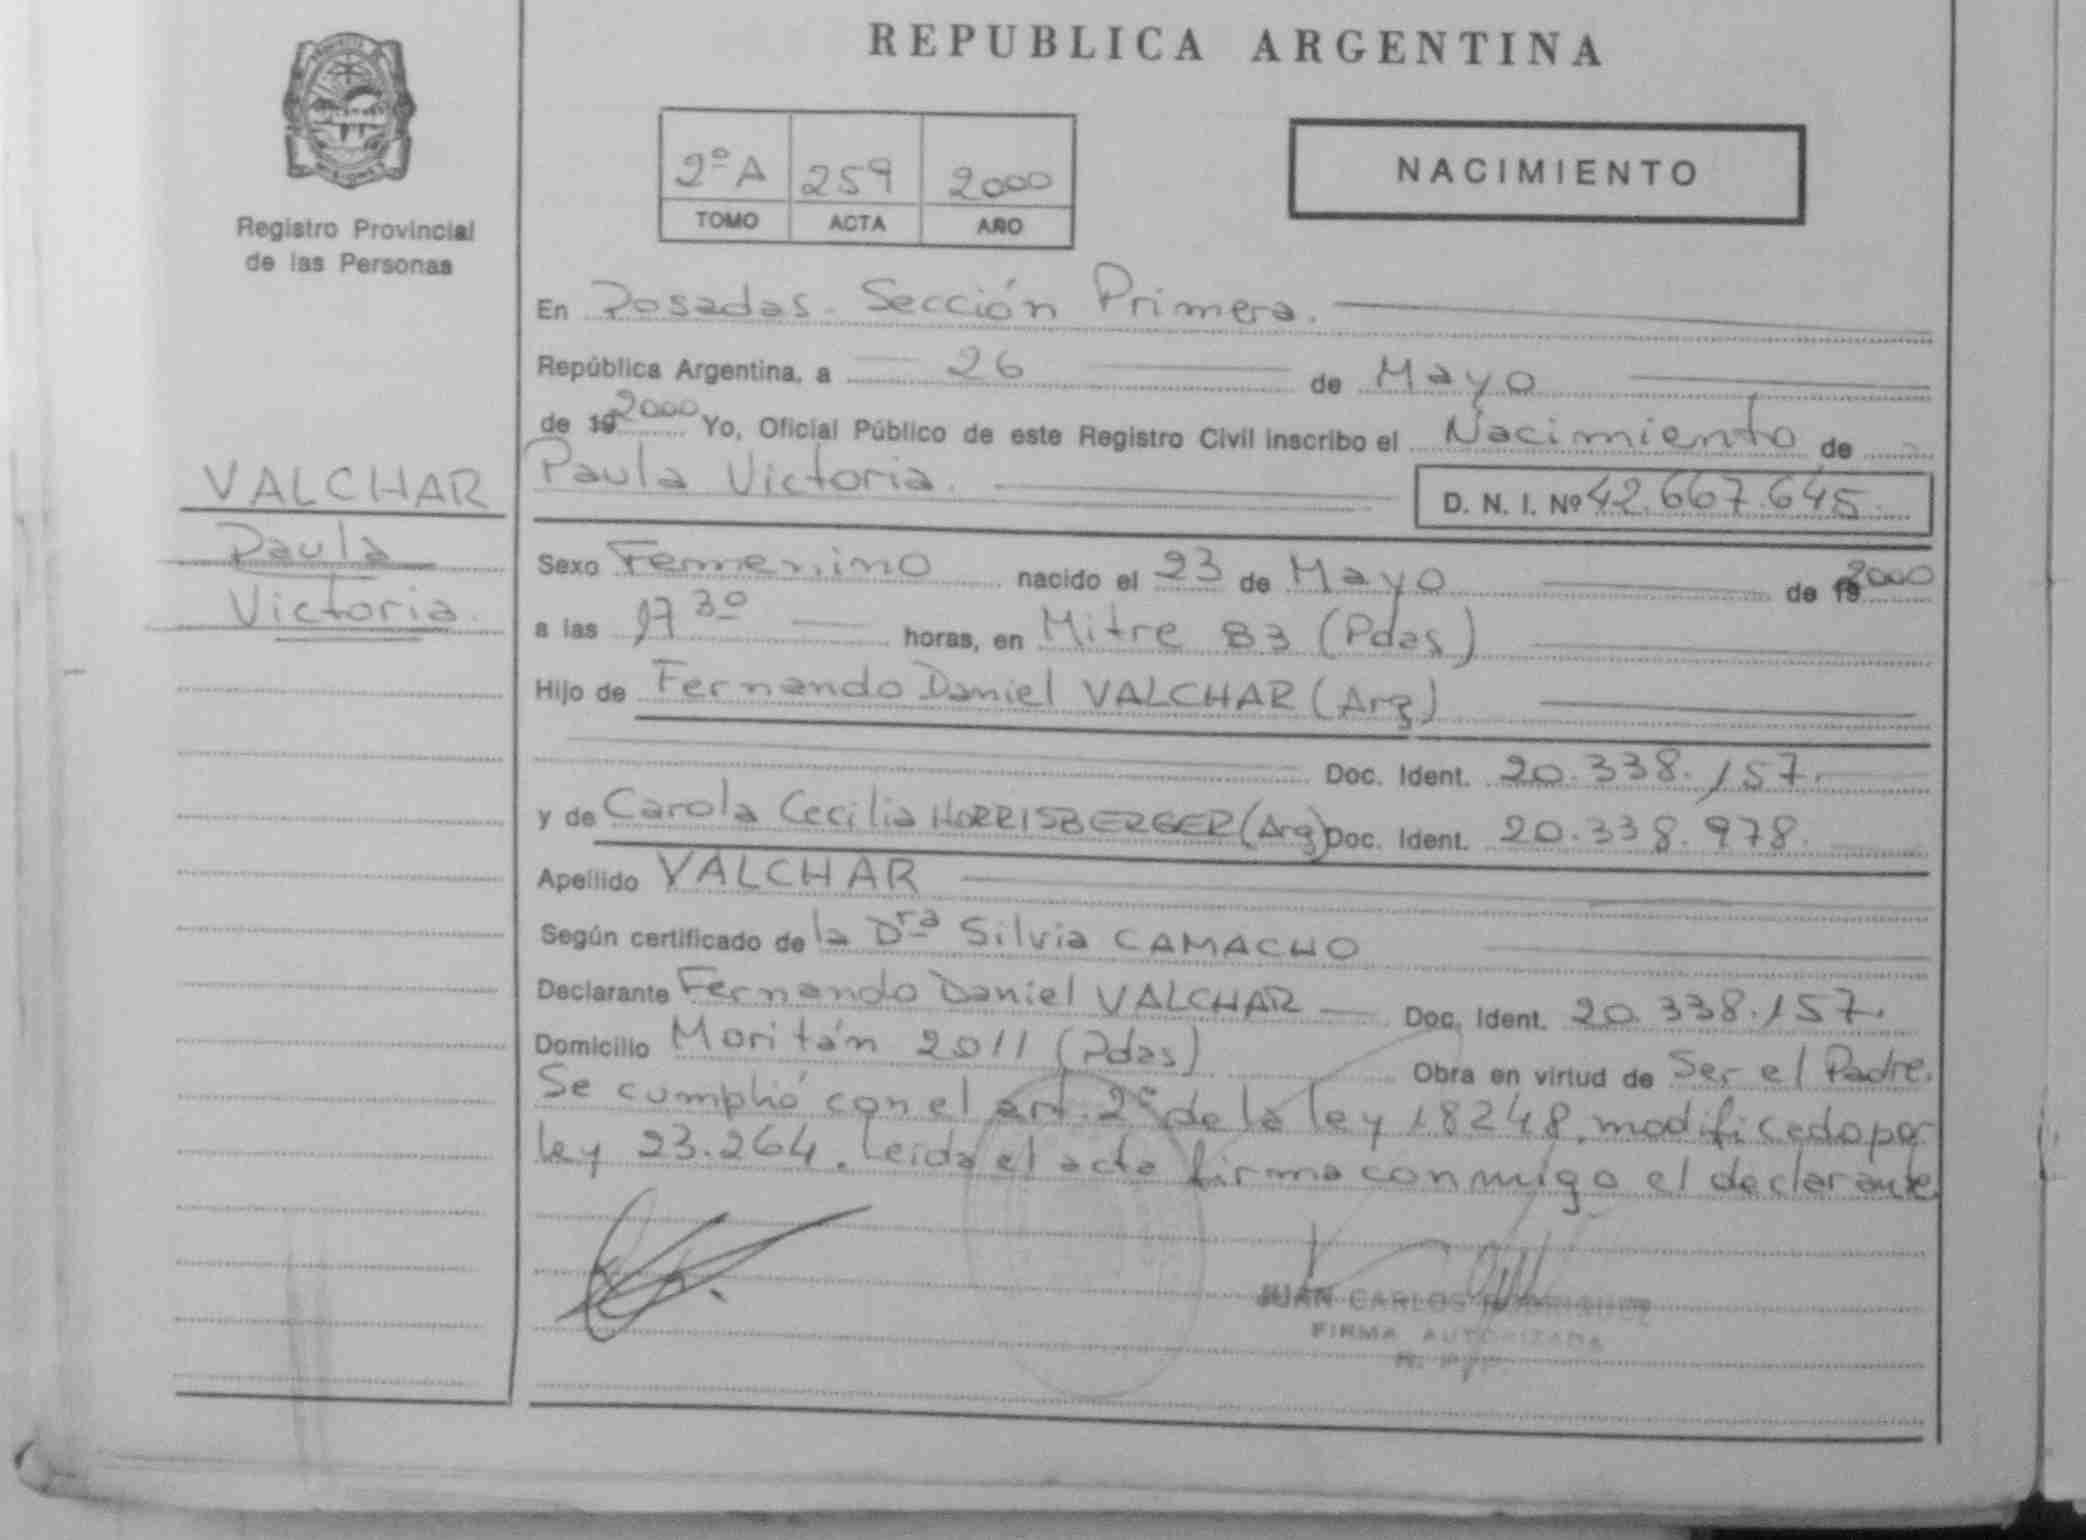 REPUBLICA ARGENTINA
Registro Provincial
de las Personas
2º A 259 2000
TOMO ACTA AÑO
NACIMIENTO
En Posadas - Sección Primera.
República Argentina, a 26 de Mayo
de 19 2000 Yo, Oficial Público de este Registro Civil inscribo el Nacimiento de
Paula Victoria. D. N. I. Nº 42.667.645.
VALCHAR
Paula
Victoria.
Sexo Femenino nacido el 23 de Mayo de 19 2000
a las 17 30 horas, en Mitre 83 (Pdas)
Hijo de Fernando Daniel VALCHAR (Arg)
Doc. Ident. 20.338.157.
y de Carola Cecilia HORRISBERGER (Arg) Doc. Ident. 20.338.978.
Apellido VALCHAR
Según certificado de la Dra Silvia CAMACHO
Declarante Fernando Daniel VALCHAR Doc. Ident. 20.338.157.
Domicilio Moritán 2011 (Pdas) Obra en virtud de Ser el Padre.
Se cumplió con el art. 2º de la ley 18248, modificado por
ley 23.264. Leída el acta firma conmigo el declarante
JUAN CARLOS RODRIGUEZ
FIRMA AUTORIZADA